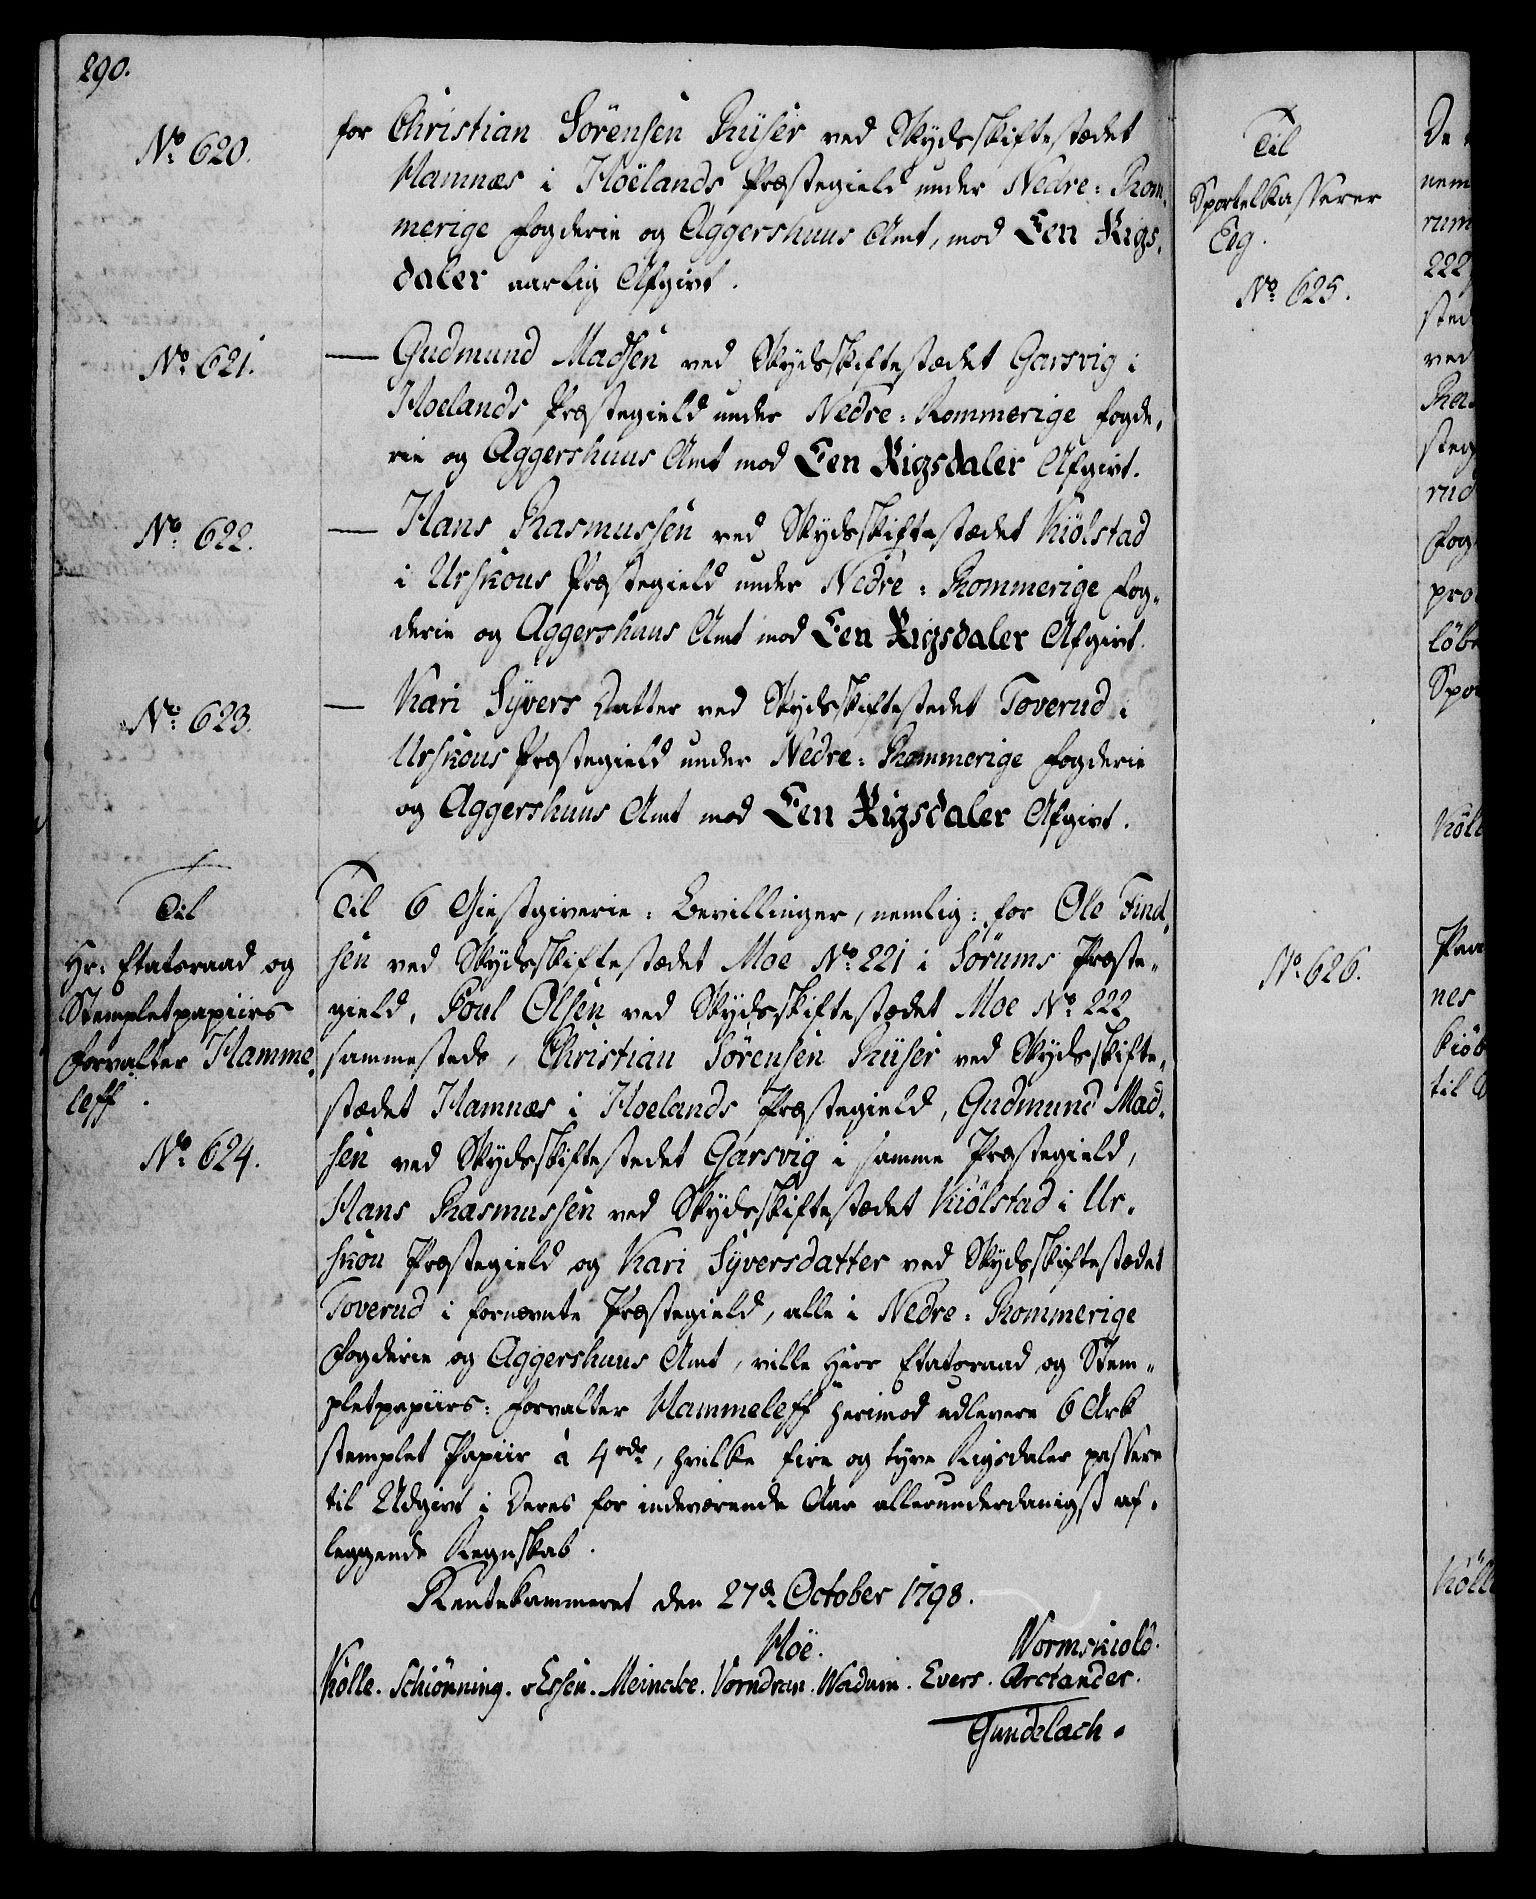 290.
No 620.
for Christian Sörensen Rüser ved Skydsskiftestædet
Hamnæs i Höelands Præstegield under Nedre-Rom-
merige Fogderie og Aggershuus Amt, mod Een Rigs-
daler aarlig Afgivt.
No 621.
— Gudmund Madsen ved Skydsskiftestædet Garsvig i
Hoelands Præstegield under Nedre-Rommerige Fogde-
rie og Aggershuus Amt mod Een Rigsdaler Afgivt.
No 622.
— Hans Rasmussen ved Skydsskiftestædet Kiölstad
i Urskous Præstegield under Nedre-Rommerige Fog-
derie og Aggershuus Amt mod Een Rigsdaler Afgivt.
No 623.
— Kari Syvers Datter ved Skydsskiftestedet Toverud i
Urskous Præstegield under Nedre-Rommerige Fogderie
og Aggershuus Amt mod Een Rigsdaler Afgivt.
Til
Hr: Etatsraad og
Stempletpapiirs
Forvalter Hamme-
leff.
No 624.
Til 6 Giestgiverie-Bevillinger, nemlig: for Ole Find-
sen ved Skydsskiftestædet Moe No 221 i Sörums Præste-
gield, Poul Olsen ved Skydsskiftestædet Moe No 222
sammesteds, Christian Sörensen Rüser ved Skydsskifte-
stædet Hamnæs i Hoelands Præstegield, Gudmund Mad-
sen ved Skydsskiftestedet Garsvig i samme Præstegield,
Hans Rasmussen ved Skydsskiftestædet Kiölstad i Ur-
skou Præstegield og Kari Syversdatter ved Skydsskiftestædet
Toverud i fornævnte Præstegield, alle i Nedre-Rommerige
Fogderie og Aggershuus Amt, ville Herr Etatsraad og Stem-
pletpapiirs-Forvalter Hammeleff herimod udlevere 6 Ark
stemplet Papiir à 4 rdr, hvilke fire og tyve Rigsdaler passere
til Udgivt i Deres for indeværende Aar allerunderdanigst af-
leggende Regnskab.
Rentekammeret den 27de October 1798.
Höe. Wormskiold.
Kölle. Schiönning. v Essen. Meincke. Vorndran. Wadum. Evers. Arctander.
Gundelach.
Til
Sportelkasserer
Eeg.
No 625.
No 626.
De
nem
rum
222
sted
ved
Ras
steg
rud
Fog
pro
löb
Spor
Köll
nes
Kiöb
til
Köll